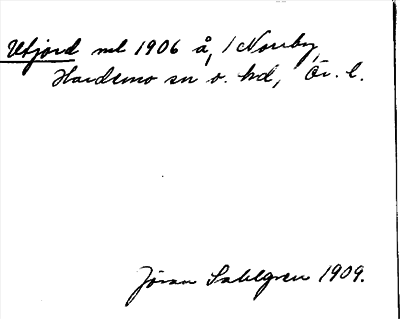 Utjord ml 1906 å, i Norrby,
Hardemo sn o. hd, Ör. l.
Jöran Sahlgren 1909.